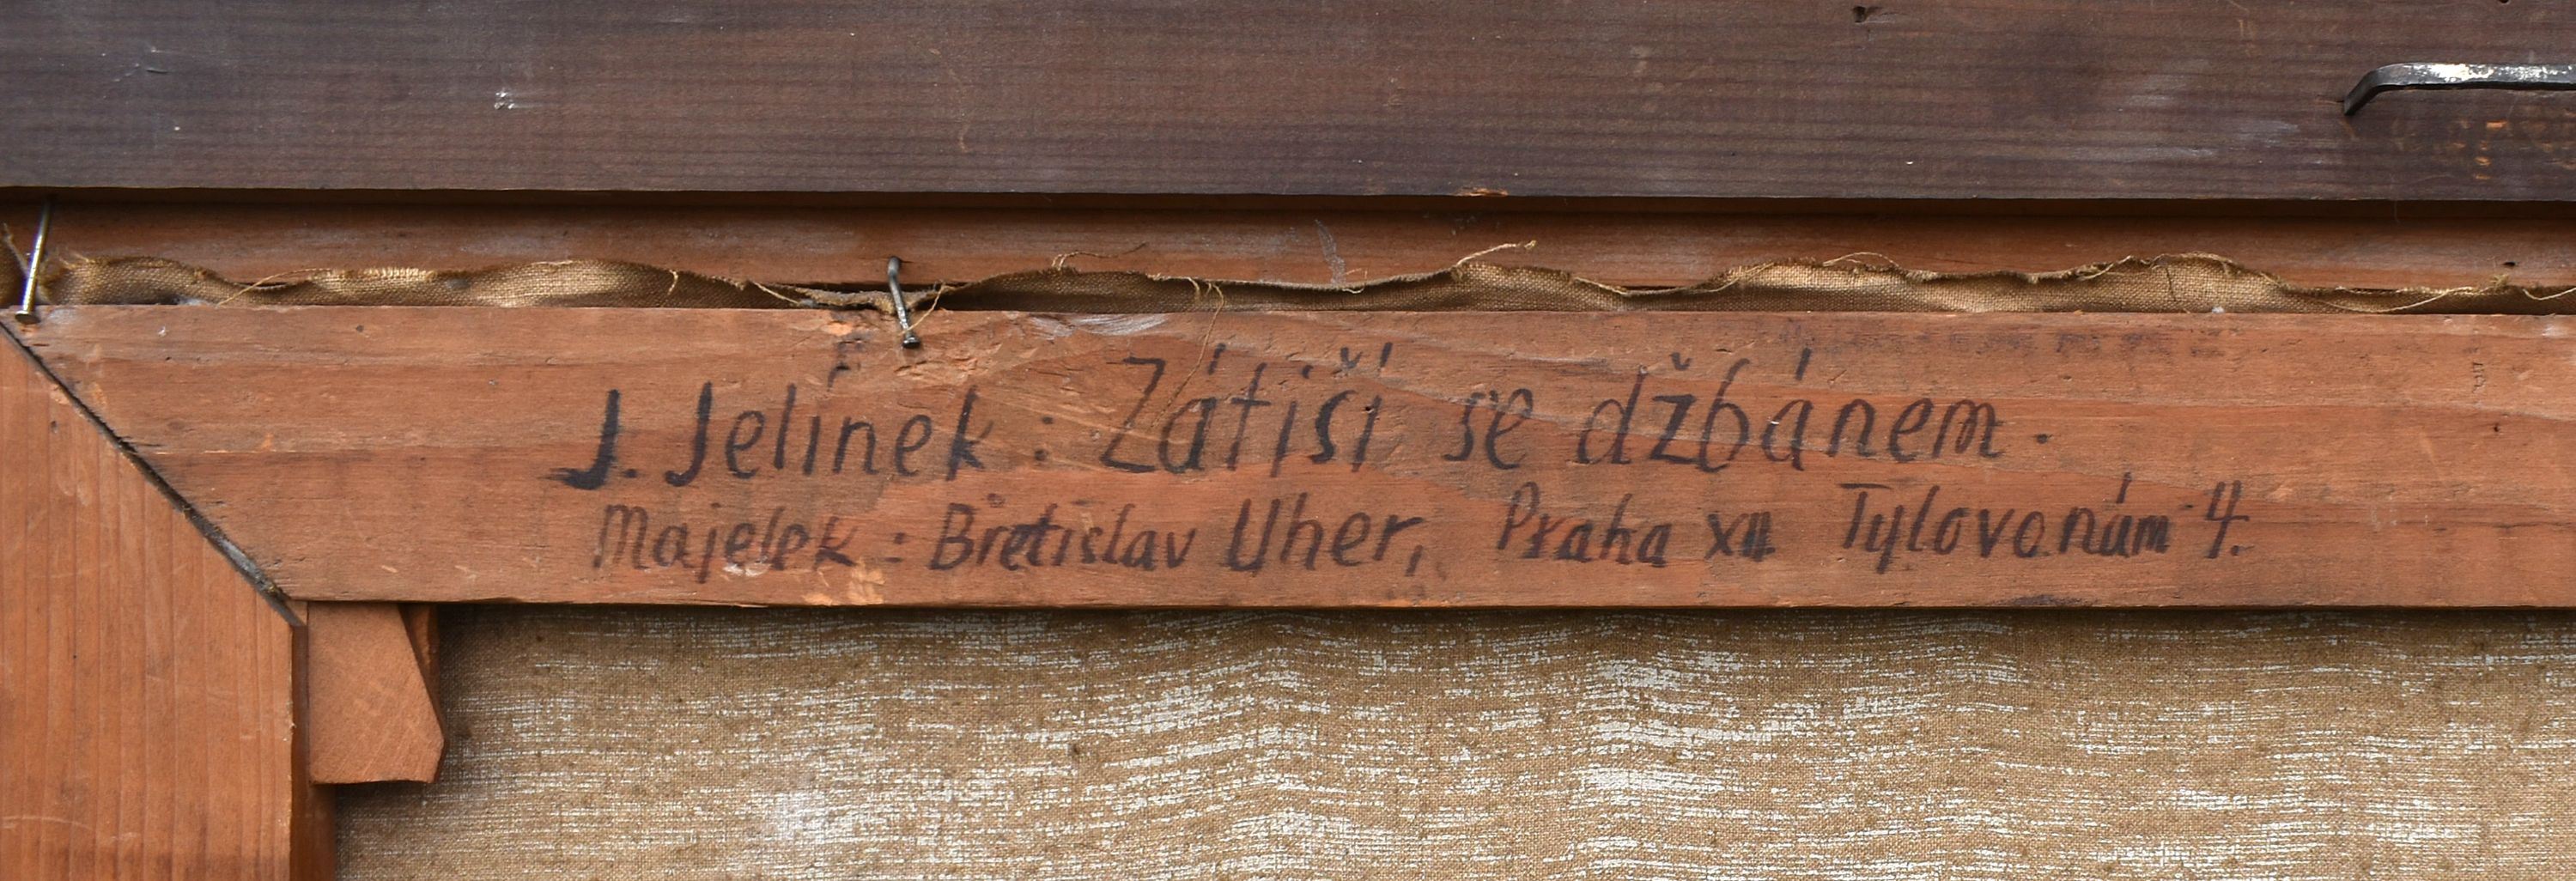 J. Jelínek : Zátiší se džbánem.
Majetek : Břetislav Uher, Praha XII Tylovo nám 4.